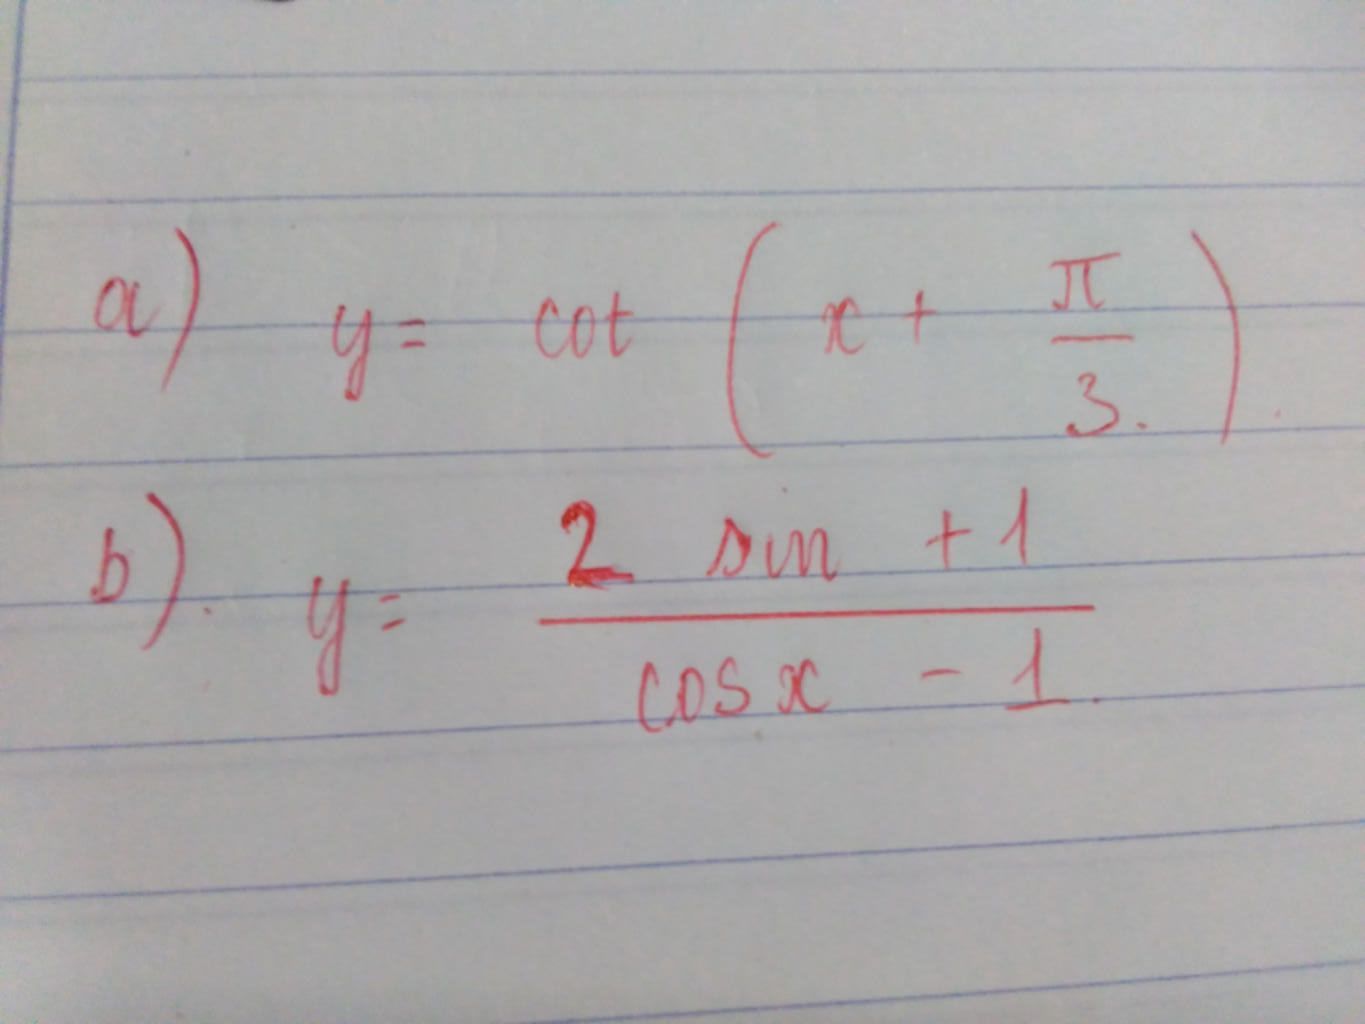 a) y = cot ( x + π/3. ).
b). y = (2 sin + 1)/(cos x - 1.)